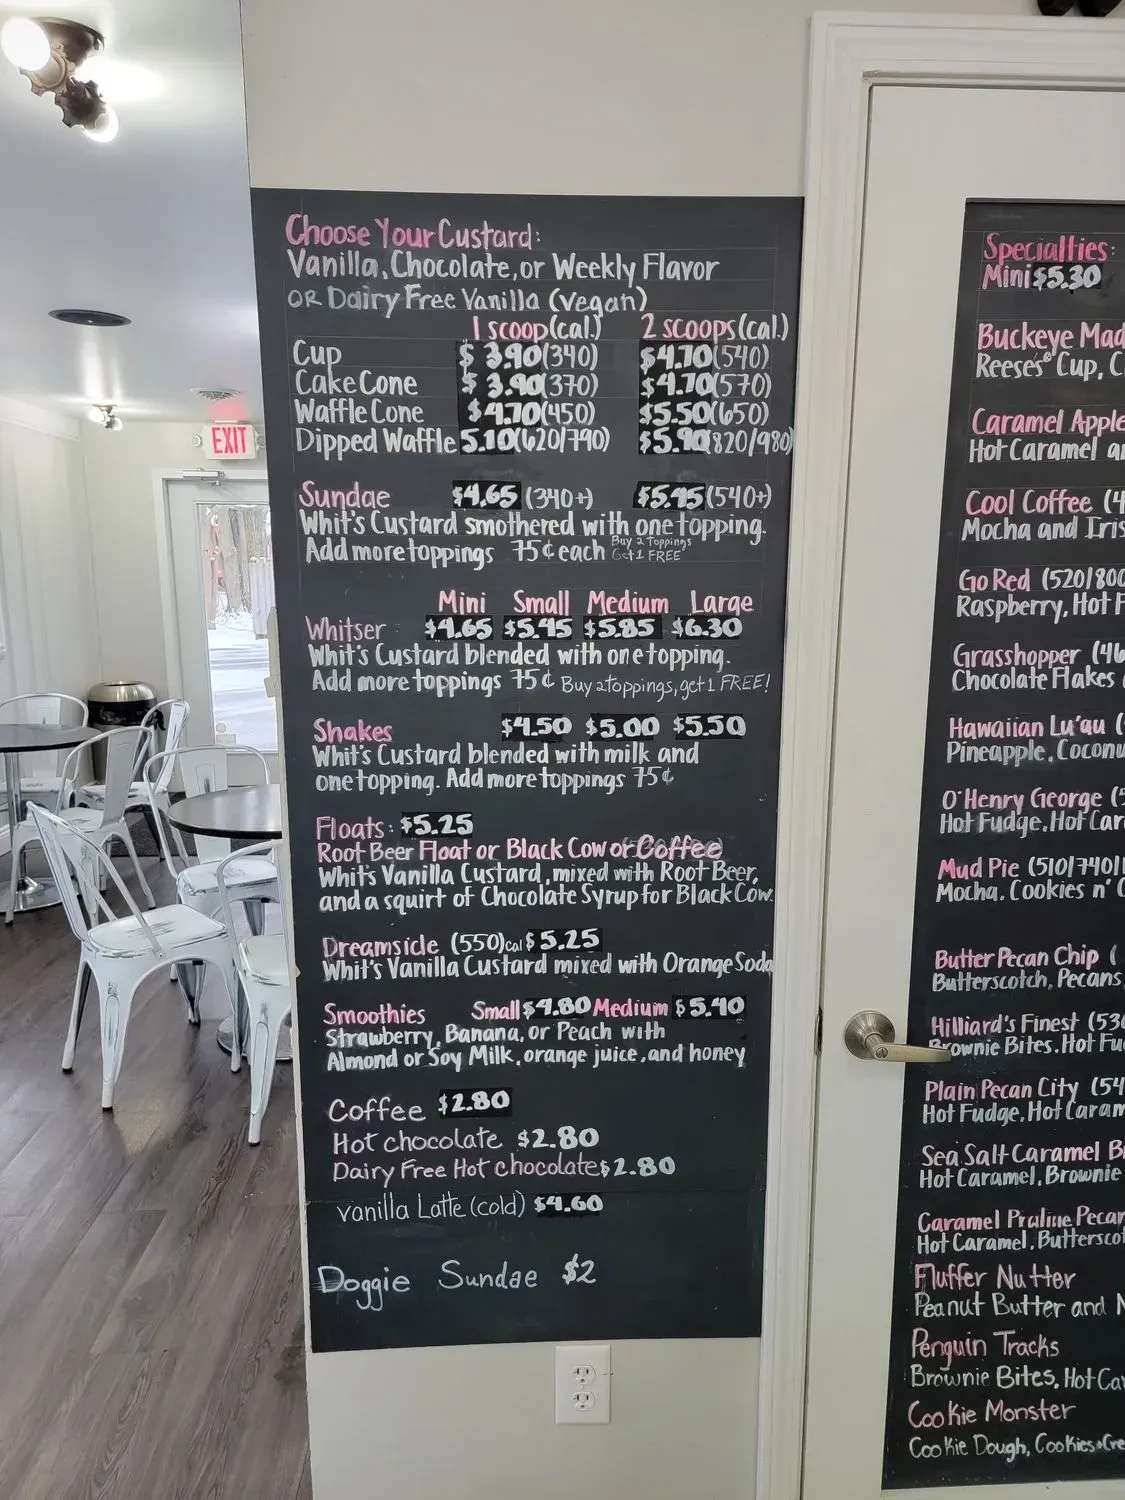 EXIT
Choose Your Custard:
Vanilla, Chocolate, or Weekly Flavor
OR Dairy Free Vanilla (vegan)
1 scoop (cal.) 2 scoops (cal.)
Cup $3.90 (340) $4.70 (540)
Cake Cone $3.90 (370) $4.70 (570)
Waffle Cone $4.70 (450) $5.50 (650)
Dipped Waffle 5.10 (620/790) $5.90 (820/980)
Sundae $4.65 (340+) $5.45 (540+)
Whit's Custard smothered with one topping.
Add more toppings 75¢ each Buy 2 Toppings
Get 1 FREE
Mini Small Medium Large
Whitser $4.65 $5.45 $5.85 $6.30
Whit's Custard blended with one topping.
Add more toppings 75¢ Buy 2 toppings, get 1 FREE!
Shakes $4.50 $5.00 $5.50
Whit's Custard blended with milk and
one topping. Add more toppings 75¢
Floats: $5.25
Root Beer Float or Black Cow or Coffee
Whit's Vanilla Custard, mixed with Root Beer,
and a squirt of Chocolate Syrup for Black Cow.
Dreamsicle (550) Cal $5.25
Whit's Vanilla Custard mixed with Orange Soda
Smoothies Small $4.80 Medium $5.40
Strawberry, Banana, or Peach with
Almond or Soy Milk, orange juice, and honey
Coffee $2.80
Hot chocolate $2.80
Dairy Free Hot chocolate $2.80
vanilla Latte (cold) $4.60
Doggie Sundae $2
Specialties:
Mini $5.30
Buckeye Mad
Reese's® Cup, C
Caramel Apple
Hot Caramel
Cool Coffee (4
Mocha and Iris
Go Red (520/800
Raspberry, Hot F
Grasshopper (46
Chocolate Flakes
Hawaiian Lu'au (
Pineapple, Coconu
O'Henry George (5
Hot Fudge, Hot Car
Mud Pie (510/740/
Mocha, Cookies n' C
Butter Pecan Chip (
Butterscotch, Pecans,
Hilliard's Finest (530
Brownie Bites, Hot Fu
Plain Pecan City (54
Hot Fudge, Hot Caram
Sea Salt Caramel B
Hot Caramel, Brownie
Caramel Praline Pecan
Hot Caramel, Buttersco
Fluffer Nutter
Peanut Butter and
Penguin Tracks
Brownie Bites, Hot Ca
Cookie Monster
Cookie Dough, Cookies + Cre